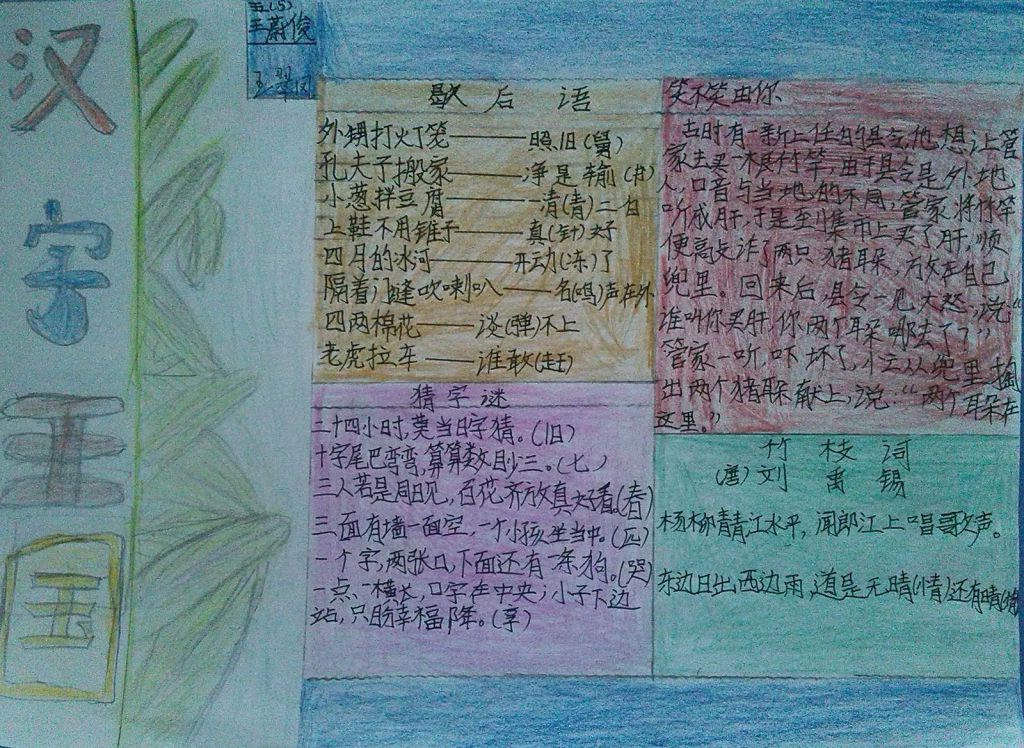 汉
字
王
国
五(5)
王蔚俊
歇后语
外甥打火灯笼——照旧(舅)
孔夫子搬家——净是输(书)
小葱拌豆腐——一清(青)二白
上鞋不用锥子——真(针)好
四月的冰河——开动(冻)了
隔着门缝吹喇叭——名(鸣)声在外
四两棉花——谈(弹)不上
老虎拉车——谁敢(赶)
笑不笑由你
古时有一新上任的县令,他想让管
家去买一根竹竿,由于县令是外地
人,口音与当地的不同,管家将竹竿
听成肝,于是到集市上买了肝,顺
便高点诈了两只猪耳朵,方放在自己
兜里。回来后,县令一见大怒,说“
谁叫你买肝,你两个耳朵哪去了?”
管家一听,吓坏了,忙从兜里掏
出两个猪耳朵献上,说:“两个耳朵在
这里。”
猜字谜
二十四小时,莫当日字猜。(旧)
十字尾巴弯弯,算算数目少三。(七)
三人若是同日见,百花齐放真好看。(春)
三面有墙一面空,一个小孩坐当中。(匹)
一个字,两张口,下面还有一条狗。(哭)
一点、一横长,口字在中央,小子下边
站,只盼幸福降。(享)
竹枝词
(唐)刘禹锡
杨柳青青江水平,闻郎江上唱歌声。
东边日出西边雨,道是无晴(情)还有晴(情